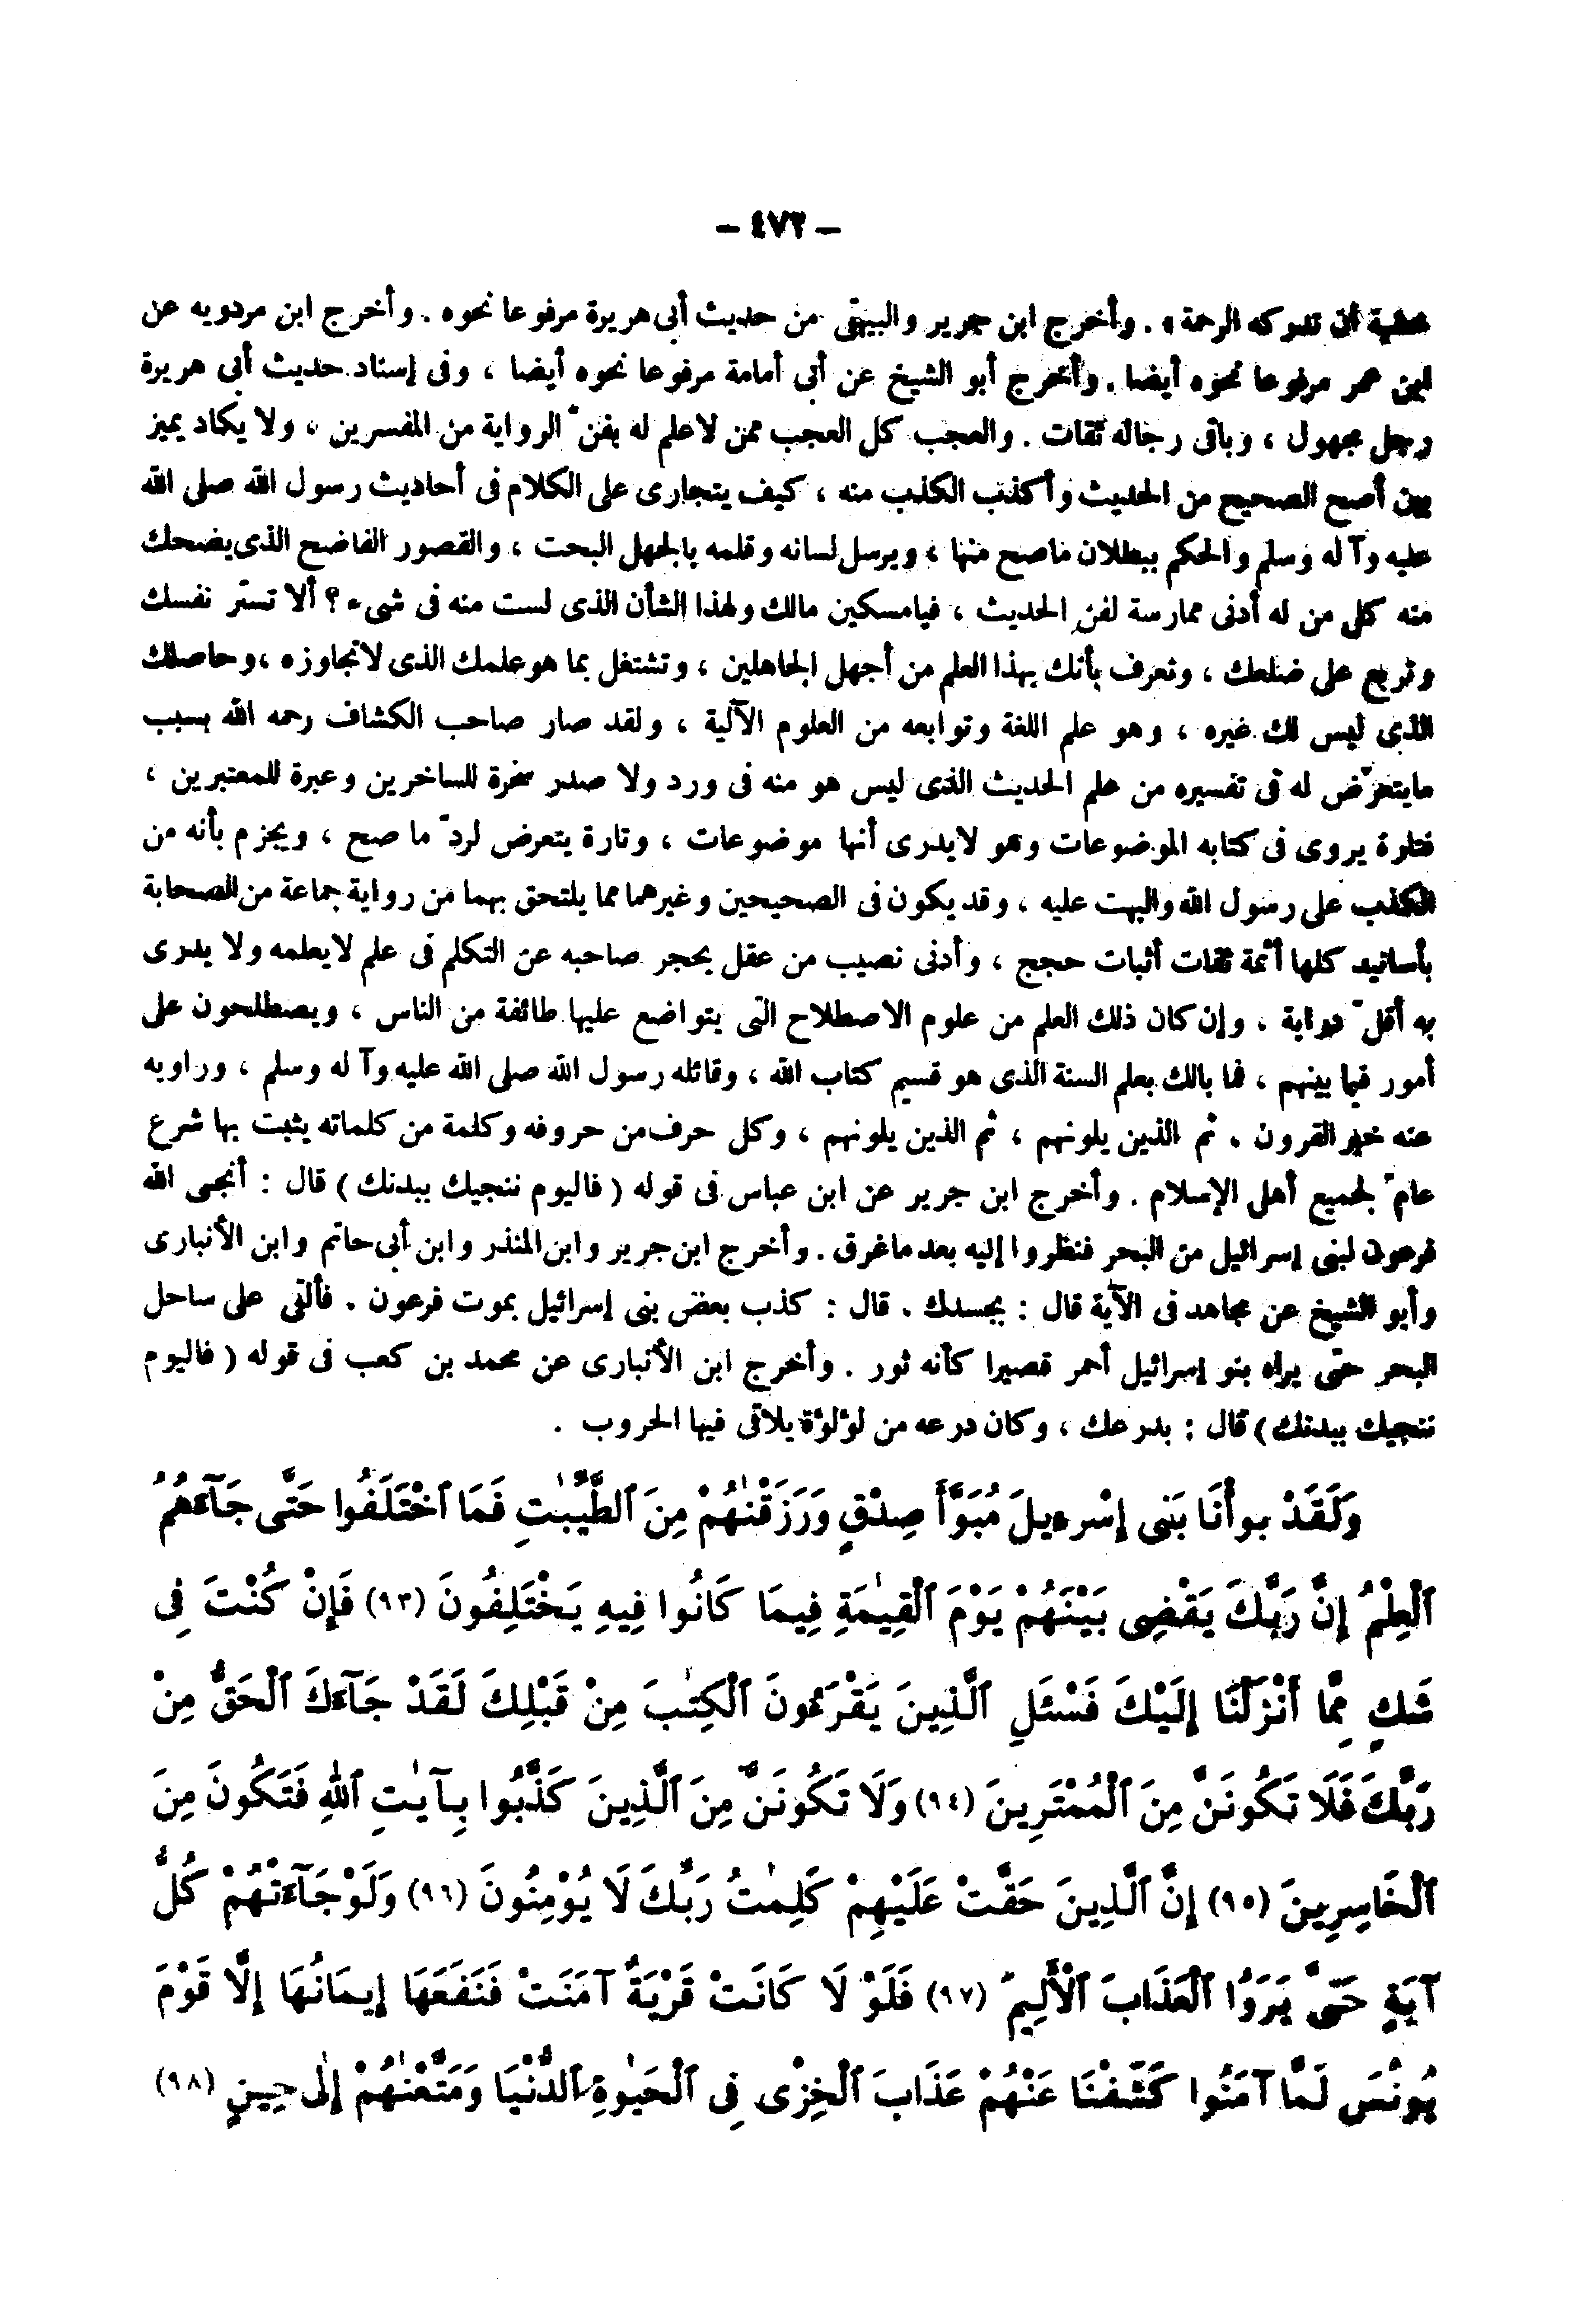 – ٤٧٢ –
مخافة أن تدركه الرحمة » . وأخرج ابن جرير والبيهقى من حديث أبى هريرة مرفوعا نحوه . وأخرج ابن مردويه عن
ابن عمر مرفوعا نحوه أيضا . وأخرج أبو الشيخ عن أبى أمامة مرفوعا نحوه أيضا ، وفى إسناد حديث أبى هريرة
رجل مجهول ، وباقى رجاله ثقات . والعجب كل العجب ممن لاعلم له بفنّ الرواية من المفسرين ، ولا يكاد يميز
بين أصح الصحيح من الحديث وأكذب الكذب منه ، كيف يتجارى على الكلام فى أحاديث رسول الله صلى الله
عليه وآ له وسلم والحكم ببطلان ماصح منها ، ويرسل لسانه وقلمه بالجهل البحت ، والقصور الفاضح الذى يضحك
منه كل من له أدنى ممارسة لفن الحديث ، فيامسكين مالك ولهذا الشأن الذى لست منه فى شىء ؟ ألا تستّر نفسك
وتربع على ضلعك ، وتعرف بأنك بهذا العلم من أجهل الجاهلين ، وتشتغل بما هو علمك الذى لاتجاوزه ، وحاصلك
الذى ليس لك غيره ، وهو علم اللغة وتوابعه من العلوم الآلية ، ولقد صار صاحب الكشاف رحمه الله بسبب
مايتعرّض له فى تفسيره من علم الحديث الذى ليس هو منه فى ورد ولا صدر سخرة للساخرين وعبرة للمعتبرين ،
فتارة يروى فى كتابه الموضوعات وهو لايدرى أنها موضوعات ، وتارة يتعرض لردّ ما صح ، ويجزم بأنه من
الكذب على رسول الله والبهت عليه ، وقد يكون فى الصحيحين وغيرهما مما يلتحق بهما من رواية جماعة من الصحابة
بأسانيد كلها أئمة ثقات أثبات حجج ، وأدنى نصيب من عقل يحجر صاحبه عن التكلم فى علم لايعلمه ولا يدرى
به أقلّ دراية ، وإن كان ذلك العلم من علوم الاصطلاح التى يتواضع عليها طائفة من الناس ، ويصطلحون على
أمور فيما بينهم ، فما بالك بعلم السنة الذى هو قسيم كتاب الله ، وقائله رسول الله صلى الله عليه وآ له وسلم ، وراويه
عنه خير القرون . ثم الذين يلونهم ، ثم الذين يلونهم ، وكل حرف من حروفه وكلمة من كلماته يثبت بها شرع
عامّ لجميع أهل الإسلام . وأخرج ابن جرير عن ابن عباس فى قوله ( فاليوم ننجيك ببدنك ) قال : أنجى الله
فرعون لبنى إسرائيل من البحر فنظروا إليه بعد ماغرق . وأخرج ابن جرير وابن المنذر وابن أبى حاتم وابن الأنبارى
وأبو الشيخ عن مجاهد فى الآية قال : بجسدك . قال : كذب بعض بنى إسرائيل بموت فرعون . فألقى على ساحل
البحر حتى يراه بنو إسرائيل أحمر قصيرا كأنه ثور . وأخرج ابن الأنبارى عن محمد بن كعب فى قوله ( فاليوم
ننجيك ببدنك ) قال : بدرعك ، وكان درعه من لؤلؤة يلاقى فيها الحروب .
وَلَقَدْ بوأْنَا بَنِى إِسْرءيلَ مُبَوَّأَ صِدْقٍ وَرَزَقْنٰهُمْ مِنَ ٱلطَّيِّبٰتِ فَمَا ٱخْتَلَفُوا حَتَّى جَآءَهُمُ
ٱلْعِلْمُ إِنَّ رَبَّكَ يَقْضِى بَيْنَهُمْ يَوْمَ ٱلْقِيٰمَةِ فِيمَا كَانُوا فِيهِ يَخْتَلِفُونَ (٩٣) فَإِنْ كُنْتَ فِى
شَكٍ مِمَّا أَنْزَلْنَا إِلَيْكَ فَسْئَلِ ٱلَّذِينَ يَقْرَءُونَ ٱلْكِتٰبَ مِنْ قَبْلِكَ لَقَدْ جَآءَكَ ٱلْحَقُّ مِنْ
رَبِّكَ فَلَا تَكُونَنَّ مِنَ ٱلْمُمْتَرِينَ (٩٤) وَلَا تَكُونَنَّ مِنَ ٱلَّذِينَ كَذَّبُوا بِـآيٰتِ ٱللهِ فَتَكُونَ مِنَ
ٱلْخَاسِرِينَ (٩٥) إِنَّ ٱلَّذِينَ حَقَّتْ عَلَيْهِمْ كَلِمٰتُ رَبِّكَ لَا يُوْمِنُونَ (٩٦) وَلَوْ جَآءَتْهُمْ كُلُّ
آيَةٍ حَتَّى يَرَوُا ٱلْعَذَابَ ٱلْأَلِيمَ (٩٧) فَلَوْ لَا كَانَتْ قَرْيَةٌ آمَنَتْ فَنَفَعَهَا إِيمَانُهَا إِلَّا قَوْمَ
يُونُسَ لَمَّا آمَنُوا كَشَفْنَا عَنْهُمْ عَذَابَ ٱلْخِزْى فِى ٱلْحَيٰوةِ ٱلدُّنْيَا وَمَتَّعْنٰهُمْ إِلٰى حِينٍ (٩٨)